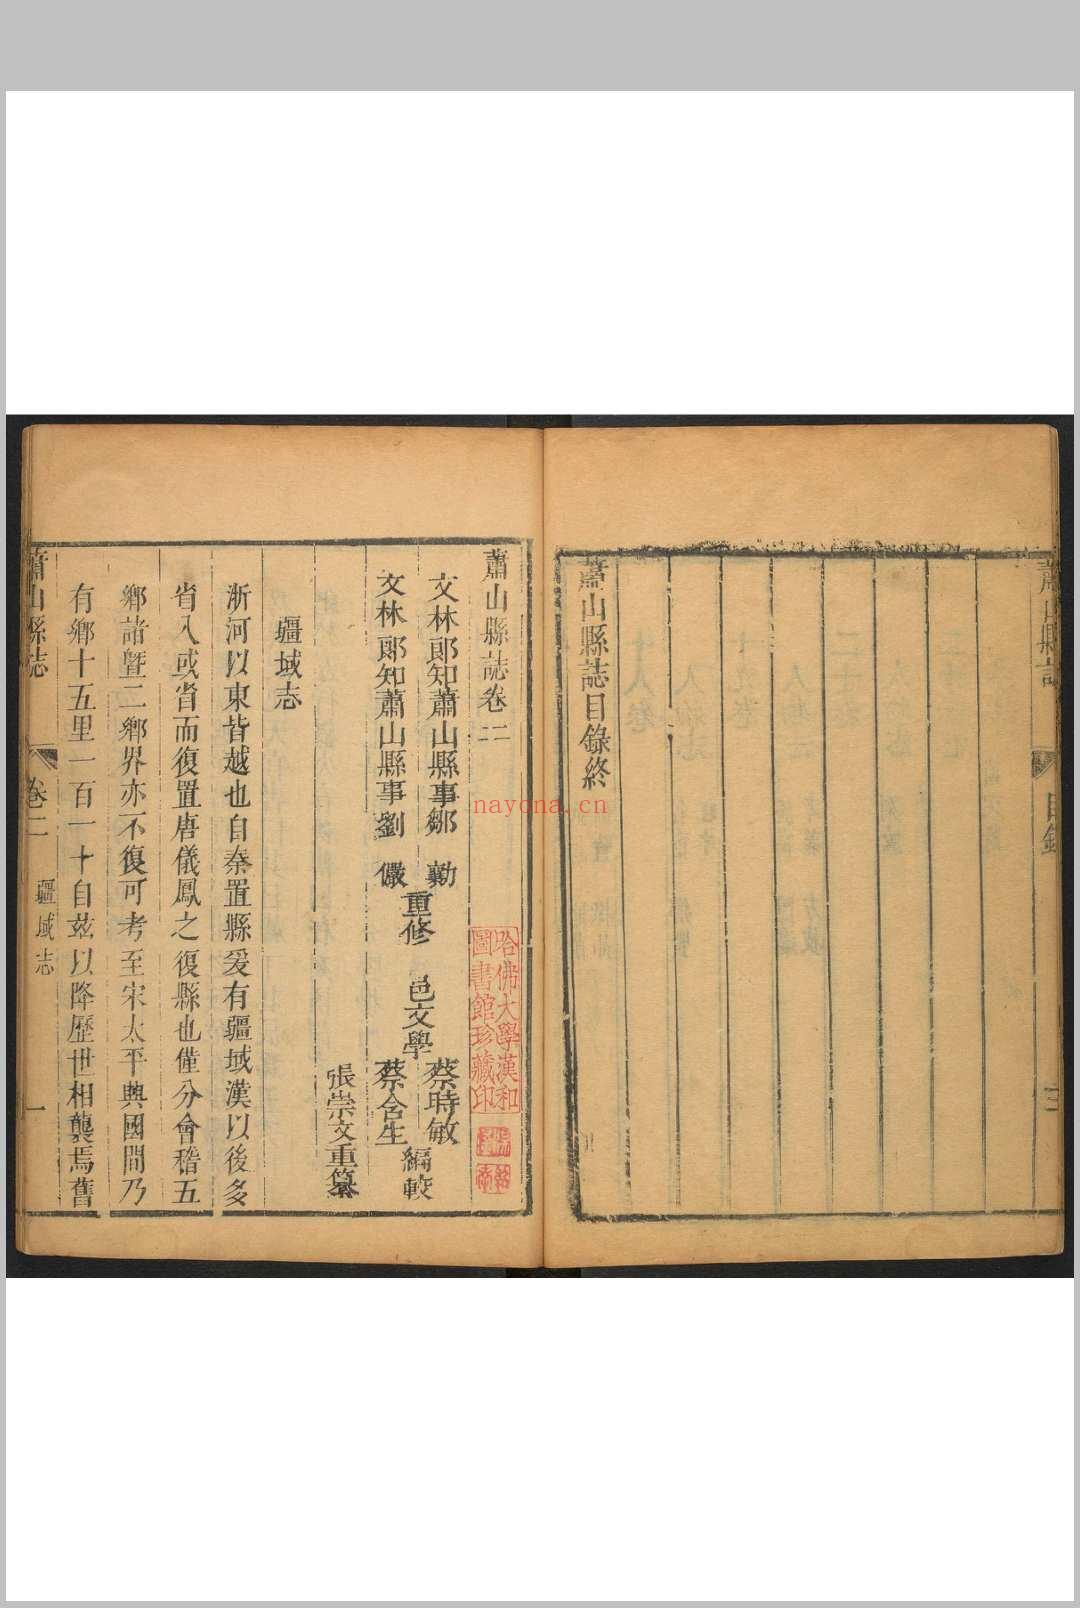 蕭山縣誌
目錄
三
蕭山縣誌目錄終
蕭山縣誌卷二
文林郎知蕭山縣事鄒 勷
文林郎知蕭山縣事劉 儼
重修
邑文學
蔡時敏
蔡含生
編較
張崇文重纂
哈佛大學漢和
圖書館珍藏印
疆域志
浙河以東皆越也自秦置縣爰有疆域漢以後多
省入或省而復置唐儀鳳之復縣也僅分會稽五
鄉諸暨二鄉界亦不復可考至宋太平興國間乃
有鄉十五里一百一十自茲以降歷世相襲焉舊
蕭山縣誌
卷二
疆域志
一
nayona.cn